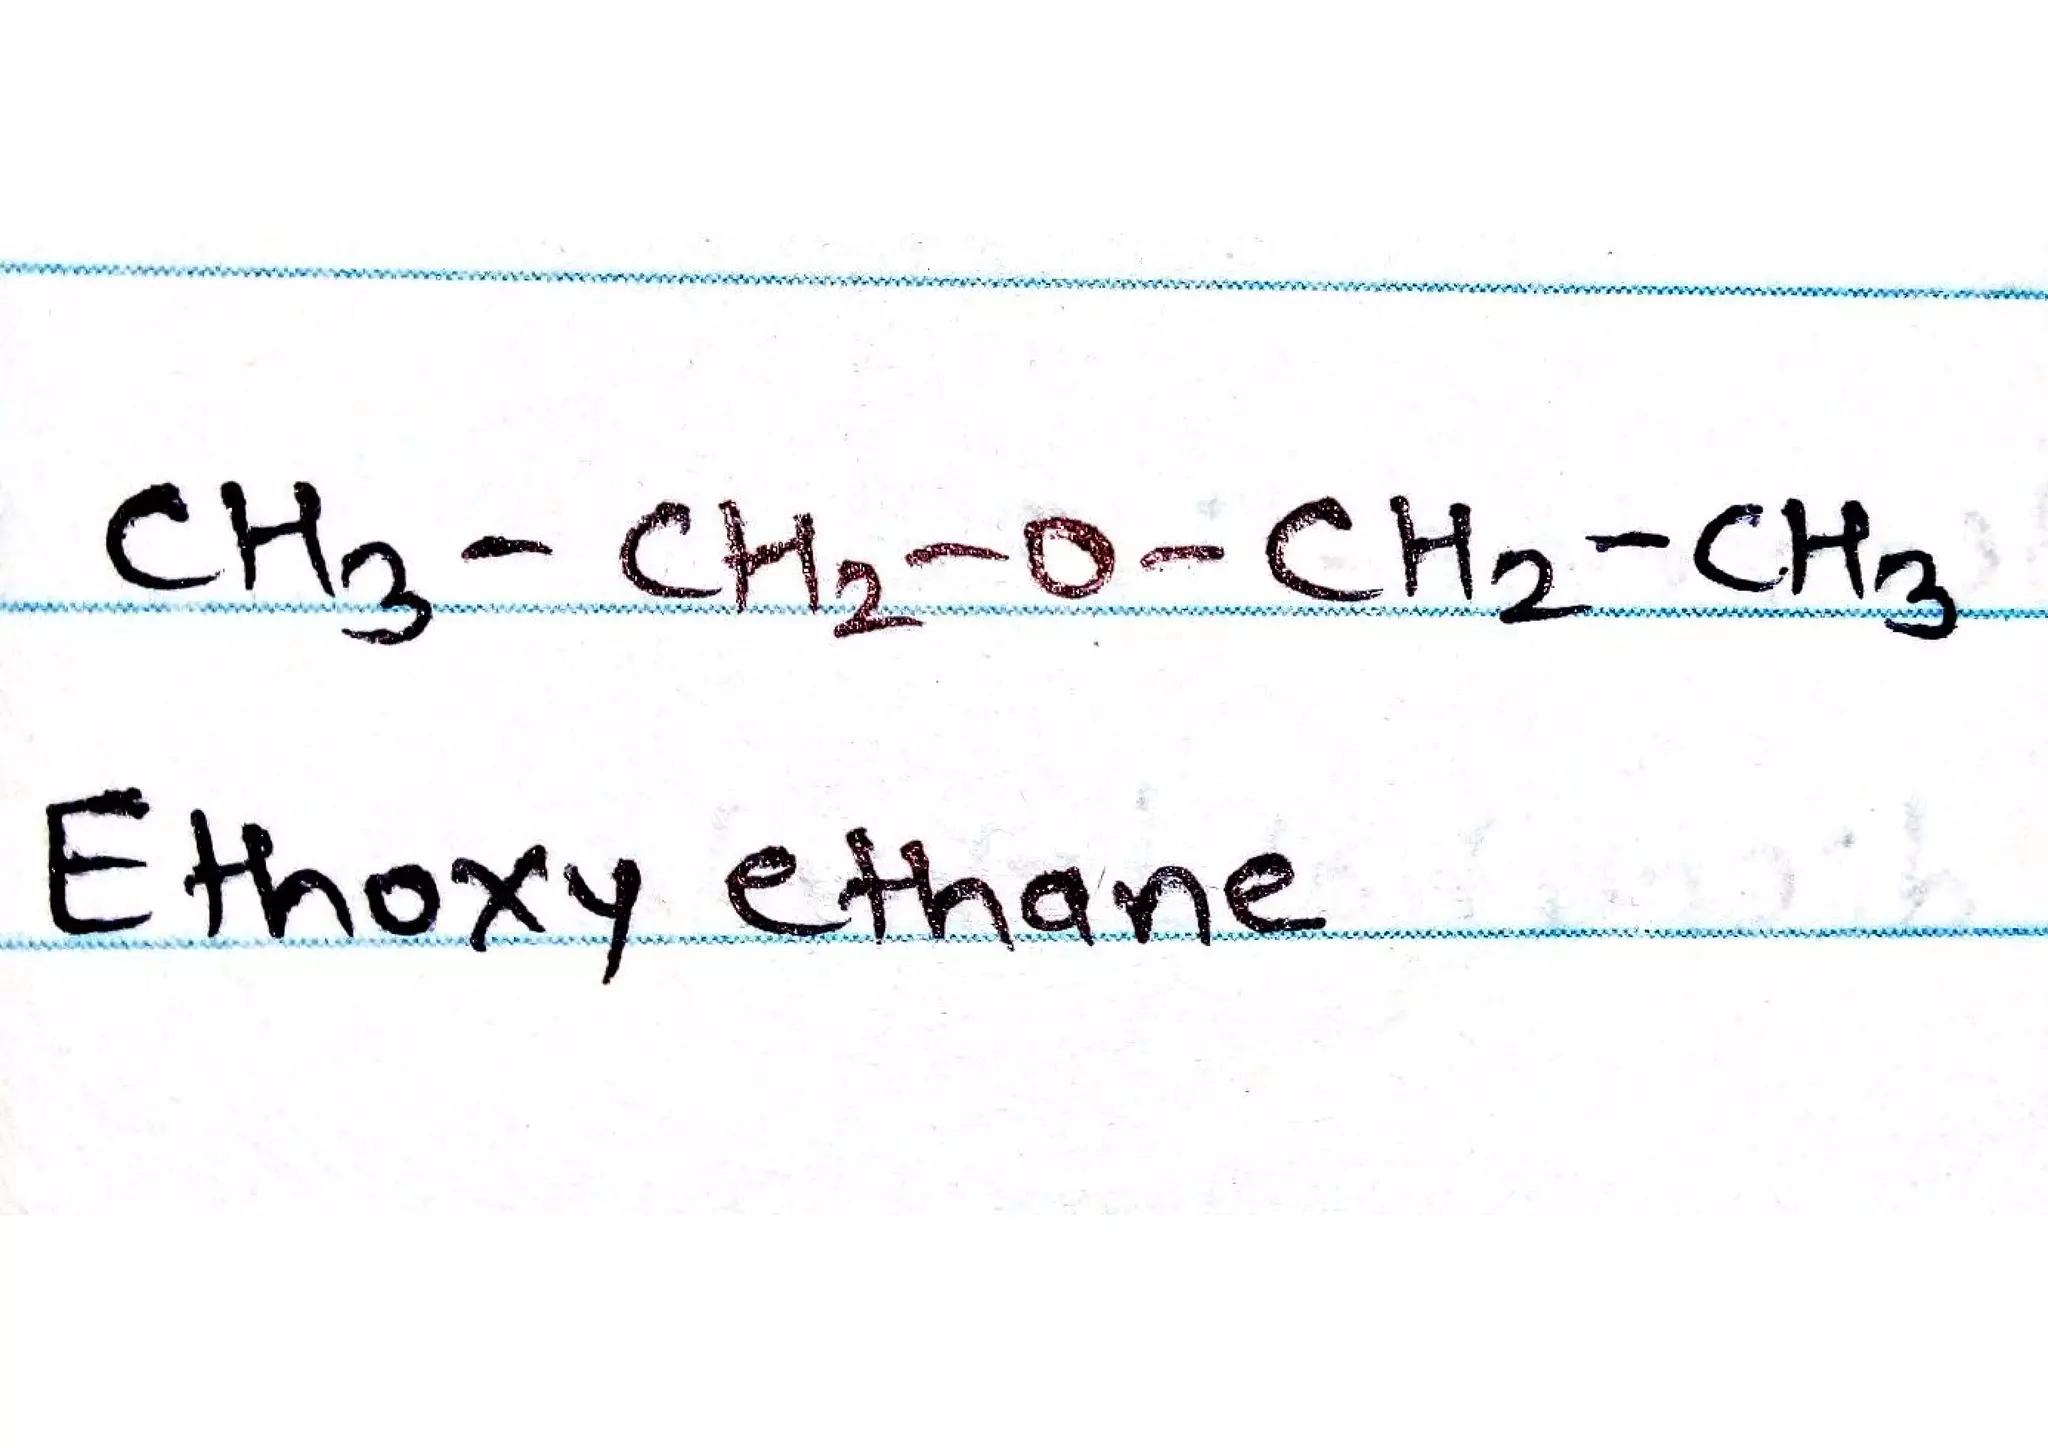 CH₃ - CH₂ - O - CH₂ - CH₃
Ethoxy ethane